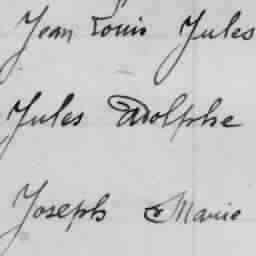 Jean Louis Jules
Jules Adolphe
Joseph Marie